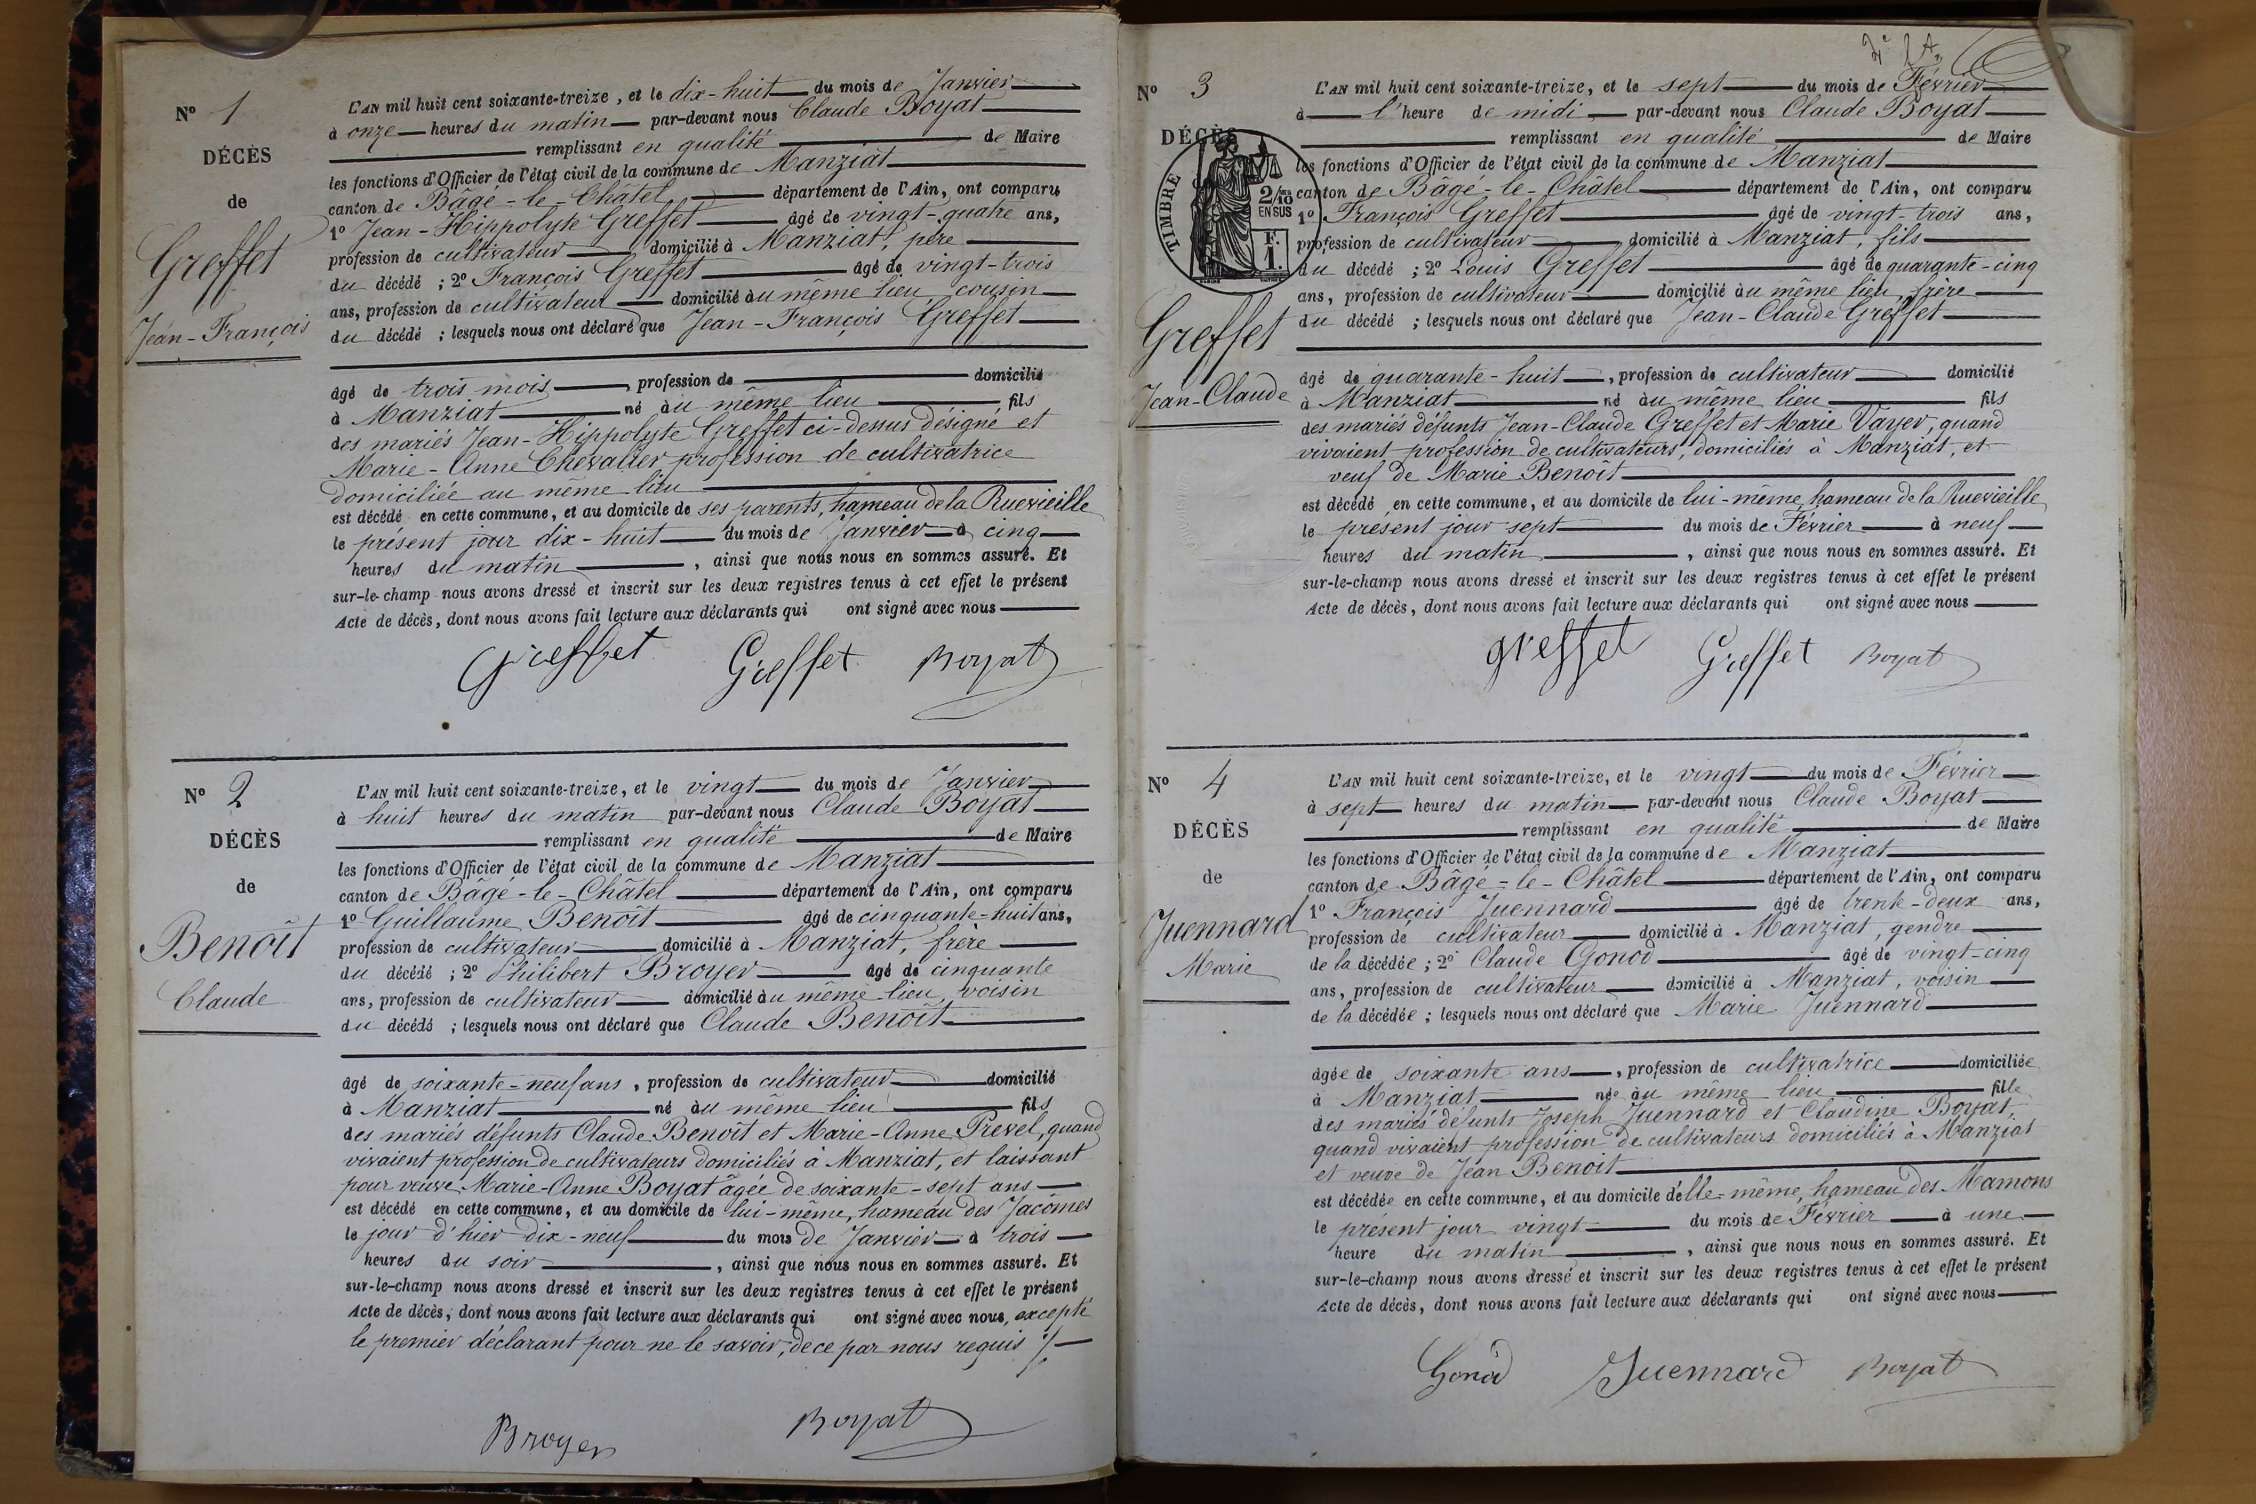 Nº 1
DÉCÈS
de
Greffet
Jean-François
L'AN mil huit cent soixante-treize, et le dix-huit du mois de Janvier
à onze heures du matin par-devant nous Claude Boyat
remplissant en qualité de Maire
les fonctions d'Officier de l'état civil de la commune de Manziat
canton de Bâgé-le-Châtel département de l'Ain, ont comparu
1º Jean-Hippolyte Greffet âgé de vingt-quatre ans,
profession de cultivateur domicilié à Manziat, père
du décédé ; 2º François Greffet âgé de vingt-trois
ans, profession de cultivateur domicilié au même lieu, cousin
du décédé ; lesquels nous ont déclaré que Jean-François Greffet
âgé de trois mois, profession de domicilié
à Manziat né au même lieu fils
des mariés Jean-Hippolyte Greffet ci-dessus désigné et
Marie-Anne Chevalier profession de cultivatrice
domiciliée au même lieu
est décédé en cette commune, et au domicile de ses parents, hameau de la Ruevieille
le présent jour dix-huit du mois de Janvier à cinq
heures du matin, ainsi que nous nous en sommes assuré. Et
sur-le-champ nous avons dressé et inscrit sur les deux registres tenus à cet effet le présent
Acte de décès, dont nous avons fait lecture aux déclarants qui ont signé avec nous
Greffet Greffet Boyat
Nº 2
DÉCÈS
de
Benoît
Claude
L'AN mil huit cent soixante-treize, et le vingt du mois de Janvier
à huit heures du matin par-devant nous Claude Boyat
remplissant en qualité de Maire
les fonctions d'Officier de l'état civil de la commune de Manziat
canton de Bâgé-le-Châtel département de l'Ain, ont comparu
1º Guillaume Benoît âgé de cinquante-huit ans,
profession de cultivateur domicilié à Manziat, frère
du décédé ; 2º Philibert Broyer âgé de cinquante
ans, profession de cultivateur domicilié au même lieu, voisin
du décédé ; lesquels nous ont déclaré que Claude Benoît
âgé de soixante-neuf ans, profession de cultivateur domicilié
à Manziat né au même lieu fils
des mariés défunts Claude Benoît et Marie-Anne Prevel, quand
vivaient profession de cultivateurs domiciliés à Manziat, et laissant
pour veuve Marie-Anne Boyat âgée de soixante-sept ans
est décédé en cette commune, et au domicile de lui-même, hameau des Jacômes
le jour d'hier dix-neuf du mois de Janvier à trois
heures du soir, ainsi que nous nous en sommes assuré. Et
sur-le-champ nous avons dressé et inscrit sur les deux registres tenus à cet effet le présent
Acte de décès, dont nous avons fait lecture aux déclarants qui ont signé avec nous, excepté
le premier déclarant pour ne le savoir, de ce par nous requis
Broyer Boyat
Nº 3
DÉCÈS
TIMBRE
2/10
EN SUS
F.
1.
Greffet
Jean-Claude
L'AN mil huit cent soixante-treize, et le sept du mois de Février
à l'heure de midi par-devant nous Claude Boyat
remplissant en qualité de Maire
les fonctions d'Officier de l'état civil de la commune de Manziat
canton de Bâgé-le-Châtel département de l'Ain, ont comparu
1º François Greffet âgé de vingt-trois ans,
profession de cultivateur domicilié à Manziat, fils
du décédé ; 2º Louis Greffet âgé de quarante-cinq
ans, profession de cultivateur domicilié au même lieu, frère
du décédé ; lesquels nous ont déclaré que Jean-Claude Greffet
âgé de quarante-huit, profession de cultivateur domicilié
à Manziat né au même lieu fils
des mariés défunts Jean-Claude Greffet et Marie Vayer, quand
vivaient profession de cultivateurs, domiciliés à Manziat, et
veuf de Marie Benoît
est décédé en cette commune, et au domicile de lui-même, hameau de la Ruevieille
le présent jour sept du mois de Février à neuf
heures du matin, ainsi que nous nous en sommes assuré. Et
sur-le-champ nous avons dressé et inscrit sur les deux registres tenus à cet effet le présent
Acte de décès, dont nous avons fait lecture aux déclarants qui ont signé avec nous
Greffet Greffet Boyat
Nº 4
DÉCÈS
de
Juennard
Marie
L'AN mil huit cent soixante-treize, et le vingt du mois de Février
à sept heures du matin par-devant nous Claude Boyat
remplissant en qualité de Maire
les fonctions d'Officier de l'état civil de la commune de Manziat
canton de Bâgé-le-Châtel département de l'Ain, ont comparu
1º François Juennard âgé de trente-deux ans,
profession de cultivateur domicilié à Manziat, gendre
de la décédée ; 2º Claude Gonod âgé de vingt-cinq
ans, profession de cultivateur domicilié à Manziat, voisin
de la décédée ; lesquels nous ont déclaré que Marie Juennard
âgée de soixante ans, profession de cultivatrice domiciliée
à Manziat née au même lieu fille
des mariés défunts Joseph Juennard et Claudine Boyat,
quand vivaient profession de cultivateurs domiciliés à Manziat
et veuve de Jean Benoît
est décédée en cette commune, et au domicile d'elle-même, hameau des Mamons
le présent jour vingt du mois de Février à une
heure du matin, ainsi que nous nous en sommes assuré. Et
sur-le-champ nous avons dressé et inscrit sur les deux registres tenus à cet effet le présent
Acte de décès, dont nous avons fait lecture aux déclarants qui ont signé avec nous
Gonod Juennard Boyat